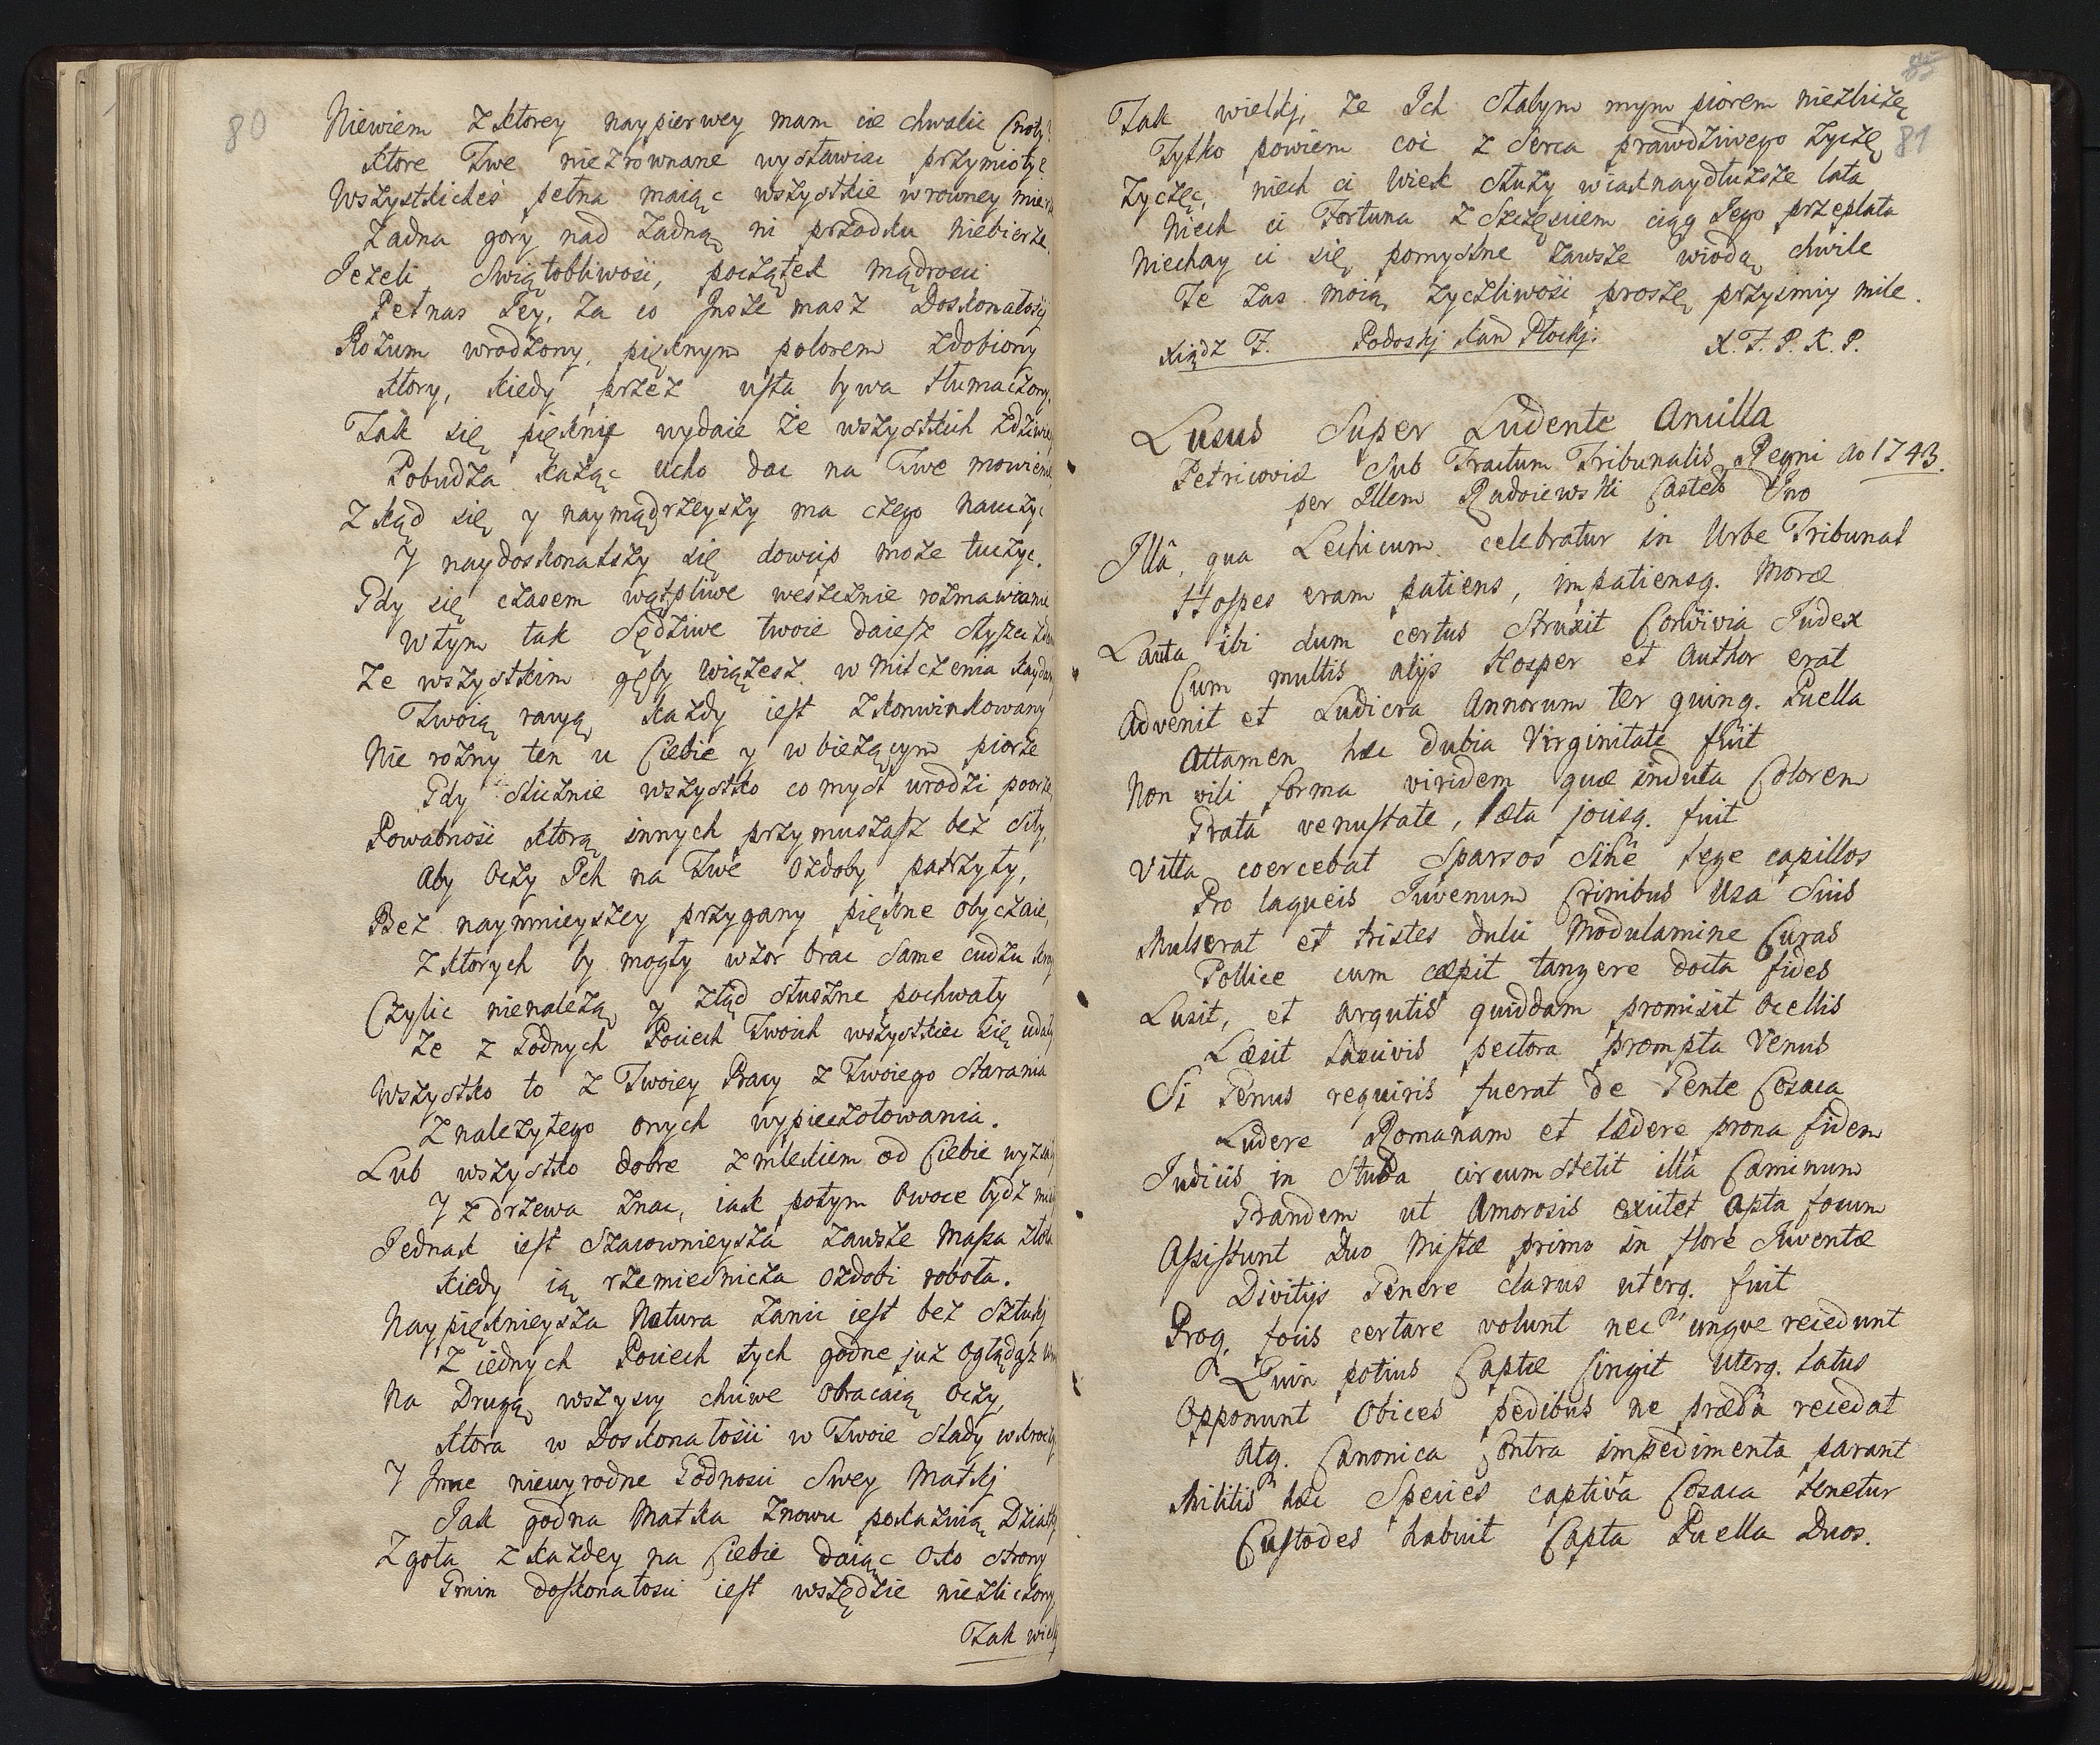 80
Niewiem z ktorey naypierwey mam cie chwalic Cnoty?
Ktore Twe niezrownane wystawiac przymioty?
Wszystkiches pełna maiąc wszystkie w rowney mierze
Zadna gory nad Zadną ni przodku niebierze.
Jezeli Swiątobliwość, początek mądrosci
Pełnas Jey, za co Insze masz Doskonałosći
Rozum wrodzony, pięknym polorem zdobiony
Ktory, kiedy przez usta bywa tłumaczony.
Tak się pięknie wydaie że wszystkich zdziwie
Pobudza każąc ucho dac na Twe mowienie
Z kąd się y naymądrzeyszy ma czego nauczyc
Y naydoskonalszy się dowcip może tuczyc.
Gdy się czasem wątpliwe wszcznie rozmawianie
W tym tak sędziwe twoie daiesz słyszec zdanie
Ze wszystkim gęby wiążesz w milczenia kaydany
Twoią racyą każdy iest zkonwinkowany
Nie rożny ten u Ciebie y w bieżącym piorze
Gdy slicznie wszystko co mysl urodzi poorze
Powabność ktorą innych przymuszasz bez siły,
Aby Oczy Ich na Twe Ozdoby patrzyły,
Bez naymnieyszey przygany piękne obyczaie,
Z ktorych by mogły wzor brac same cudze kraie
Czylic nienależą y ztąd słuszne pochwały
Ze z Godnych Pociech Twoich wszystkiec się udały
Wszystko to z Twoiey Pracy z Twoiego starania
Z należytego onych wypieczołowania.
Lub wszystko dobre z mlekiem od Ciebie wyssały
Y z drzewa znac, iak potym Owoce bydz miały
Jednak iest szacownieysza zawsze massa złota
Kiedy ią rzemiesnicza ozdobi robota.
Naypięknieysza Natura zanic iest bez sztuki
Z iednych Pociech tych godne już oglądasz
Na Drugą wszyscy chciwe obracaią oczy,
Ktora w Doskonałosci w Twoie slady wkroczy
Y Inne niewyrodne Godnosci swey Matki
Jak godna Matka znowu pokażnią Dziatki
Zgoła z każdey na Ciebie daiąc oko strony
Gmin doskonałosci iest wszędzie niezliczony,
Tak wielki

81
Tak wielki, ze Ich stałym mym piorem niezliżę
Tylko powiem coć z serca prawdziwego życzę
Zyczęc, niech ci wiek służy w iaknaydłuższe lata
Niech ci Fortuna z szczęsciem ciąg Jego przeplata
Niechay ci się pomyslne zawsze wiodą chwile
Te zas moią życzliwość proszę przyimiy mile.
Xiądz J. Podoski Kan Płocki: X. J. P. K. P.
Lusus Super Ludente Ancilla
Petricoviæ sub Tractum Tribunalis Regni Ao 1743.
per Illem Radoiewski Castel Ino
Illâ, qua Lechicum celebratur in Urbe Tribunal
Hospes eram patiens, impatiensq. Moræ
Lauta ibi dum certus struxit Convivia Judex
Cum multis alijs Hosper et Author erat
Advenit et Ludicra Annorum ter quinq. Puella
Attamen hæc dubia Virginitate fuit
Non vili forma viridem quæ induta Colorem
Grata venustate, læta jocisq. fuit
Vitta coercebat sparsos sine lege capillos
Pro laqueis Juvenum Crinibus usa suis
Mulserat et tristes dulci Modulamine Curas
Pollice cum cæpit tangere docta fides
Lusit, et argutis quiddam promisit Ocellis
Læsit lascivis pectora prompta Venus
Si Genus requiris fuerat de Gente Cosaca
Ludere Romanam et lædere prona fidem
Judicis in Stuba circumstetit illa Caminum
Grandem ut Amorosis excitet apta focum
Assistunt Duo Mistæ primo in flore Juventæ
Divitijs Genere clarus uterq. fuit
Proq. focis certare volunt nec ungue recedunt
Quin potius Captæ cingit uterq. latus
Opponunt Obices pedibus ne præda recedat
Atq. Canonica contra impedimenta parant
Militis hæc species captiva Cosaca tenetur
Custodes habuit Capta Puella Duos.